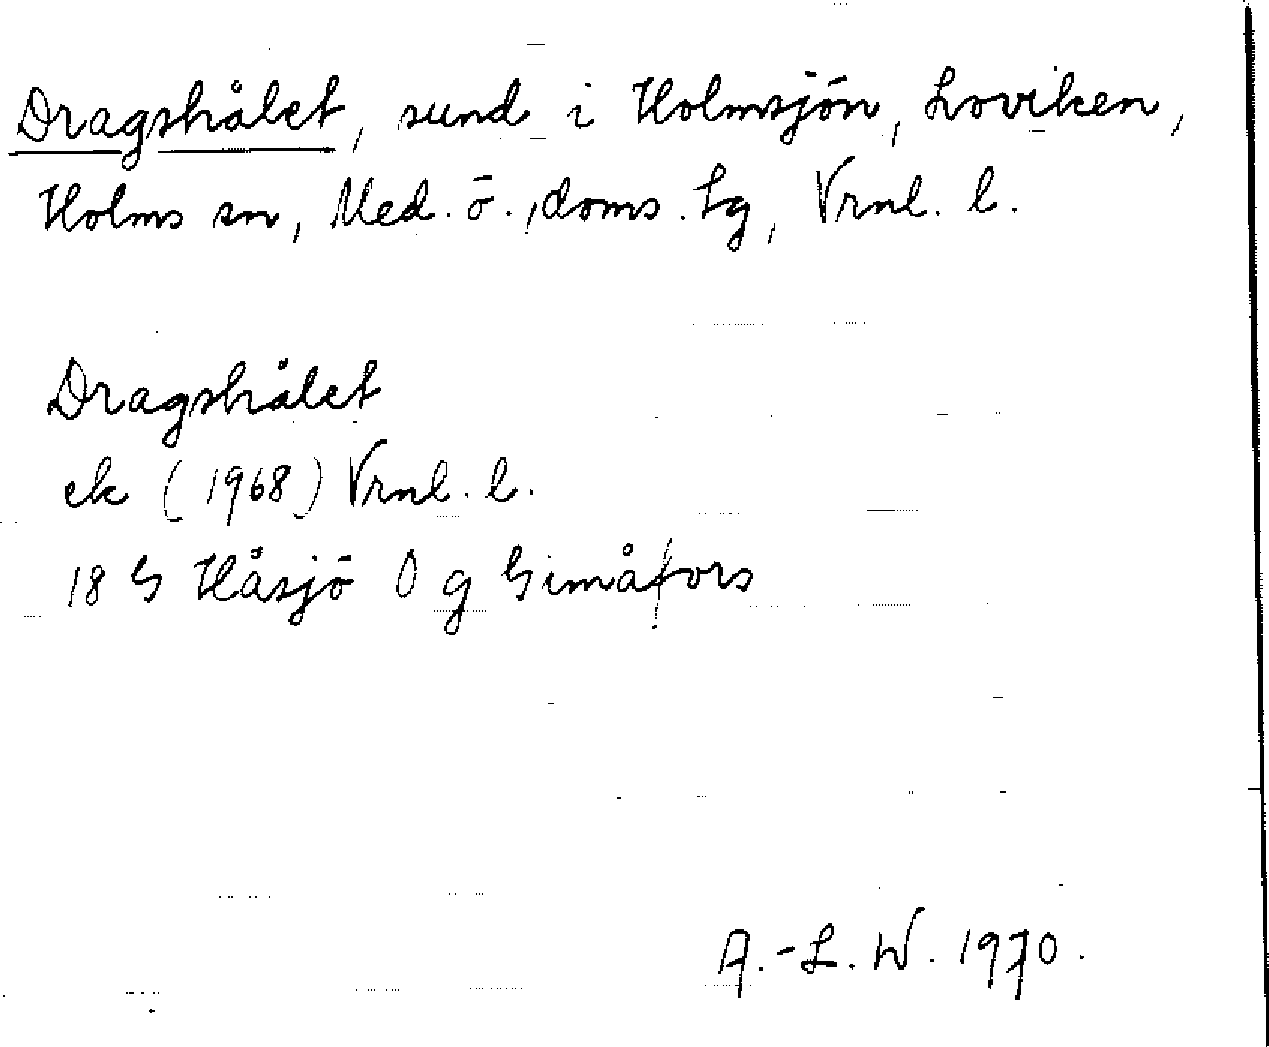 Dragshålet, sund i Holmsjön, Loviken,
Holms sn, Med. ö., doms. Lg, Vrnl. l.
Dragshålet
ek (1968) Vrnl. l.
18 G Håsjö O g Gimåfors
A.-L. W. 1970.